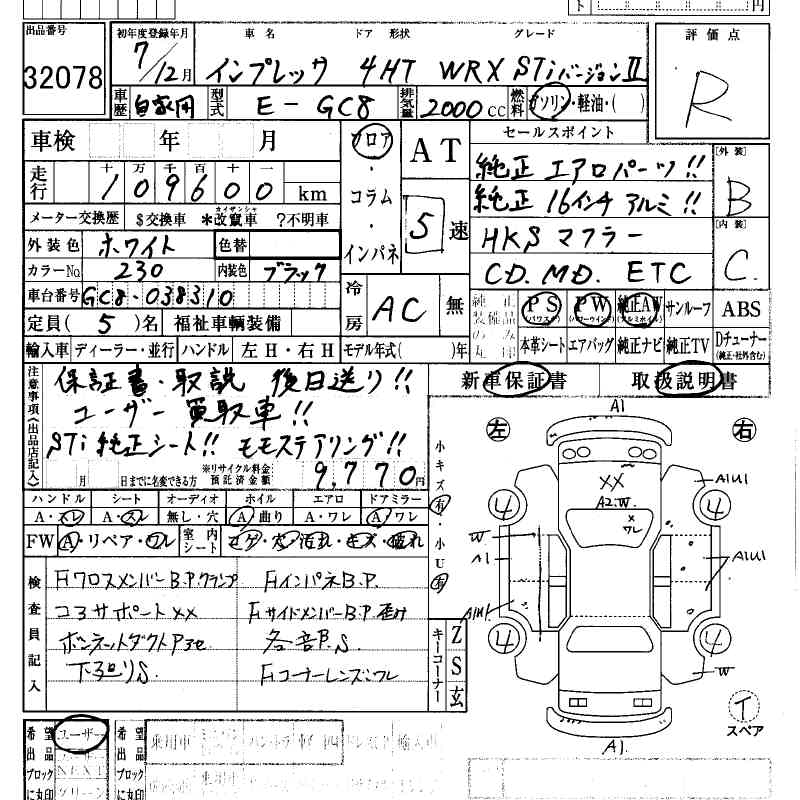 出品番号 初年度登録年月 車名 ドア 形状 グレード 評価点
32078 7/12月 インプレッサ 4HT WRX STiバージョンⅡ R
車歴 自家用 型式 E-GC8 排気量 2000cc 燃料 ガソリン・軽油・( )
車検 年 月 フロア・コラム・インパネ AT 5速 セールスポイント
走行 十 万 千 百 十 一
109600 km
純正 エアロパーツ!! [外装] B
純正 16インチ アルミ!!
メーター交換歴 $交換車 *改竄車 ?不明車 カイザンシャ
HKS マフラー [内装] C.
外装色 ホワイト 色替
CD. MD. ETC
カラーNo. 230 内装色 ブラック
車台番号 GC8-038310 冷房 AC 無
純正装備品のみ〇印 PS (パワステ) PW (パワーウインド) 純正AW (アルミホイル) サンルーフ ABS
定員( 5 )名 福祉車輌装備
本革シート エアバッグ 純正ナビ 純正TV Dチューナー (純正・社外含む)
輸入車 ディーラー・並行 ハンドル 左H・右H モデル年式( )年
注意事項(出品店記入) 保証書・取説 後日送り!! 新車保証書 取扱説明書
ユーザー買取車!!
STi純正シート!! モモステアリング!!
月 日までに名変できる方 ※リサイクル料金預託済金額 9,770円
ハンドル シート オーディオ ホイル エアロ ドアミラー
A・スレ A・スレ 無し・穴 A 曲り A・ワレ A ワレ
FW A・リペア・ワレ 室内シート コゲ・穴・汚れ・キズ・破れ
小キズ 有・小U 有
検査員記入
Fクロスメンバー B.P.クランプ FインパネB.P.
コアサポート×× FサイドメンバーB.P.歪み
ボンネットダクト 各部P.S.
下廻りS Fコーナーレンズワレ
キーコーナー Z S 玄
左 右
A1
×× A2.W.
× ワレ
A1U1
4 4
W
A1
A1U1
A1U1
4 4
W
A1.
イ スペア
希望出品ブロックに丸印 ユーザー
NEXT